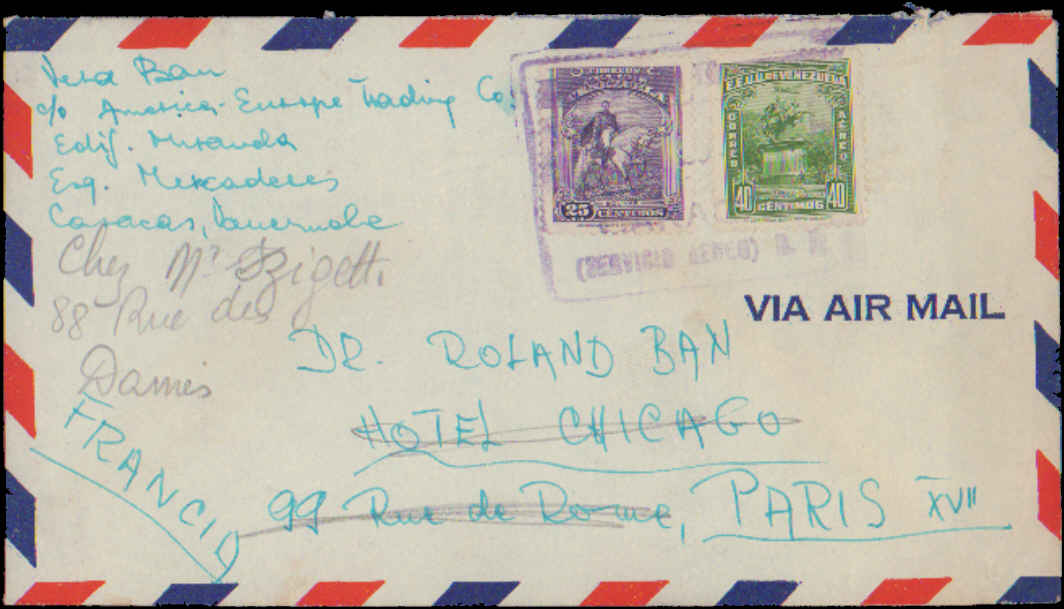 Vera Ban
c/o America-Europe Trading Co.
Edif. Miranda
Esq. Mercaderes
Caracas, Venezuela
CORREOS
VENEZUELA
25 CENTIMOS
EE.UU. DE VENEZUELA
CORREO AEREO
40 CENTIMOS 40
(SERVICIO AEREO)
VIA AIR MAIL
Chez Mr Szigetti
88 Rue des
Dames
DR. ROLAND BAN
HOTEL CHICAGO
99 Rue de Rome, PARIS XVII
FRANCIA